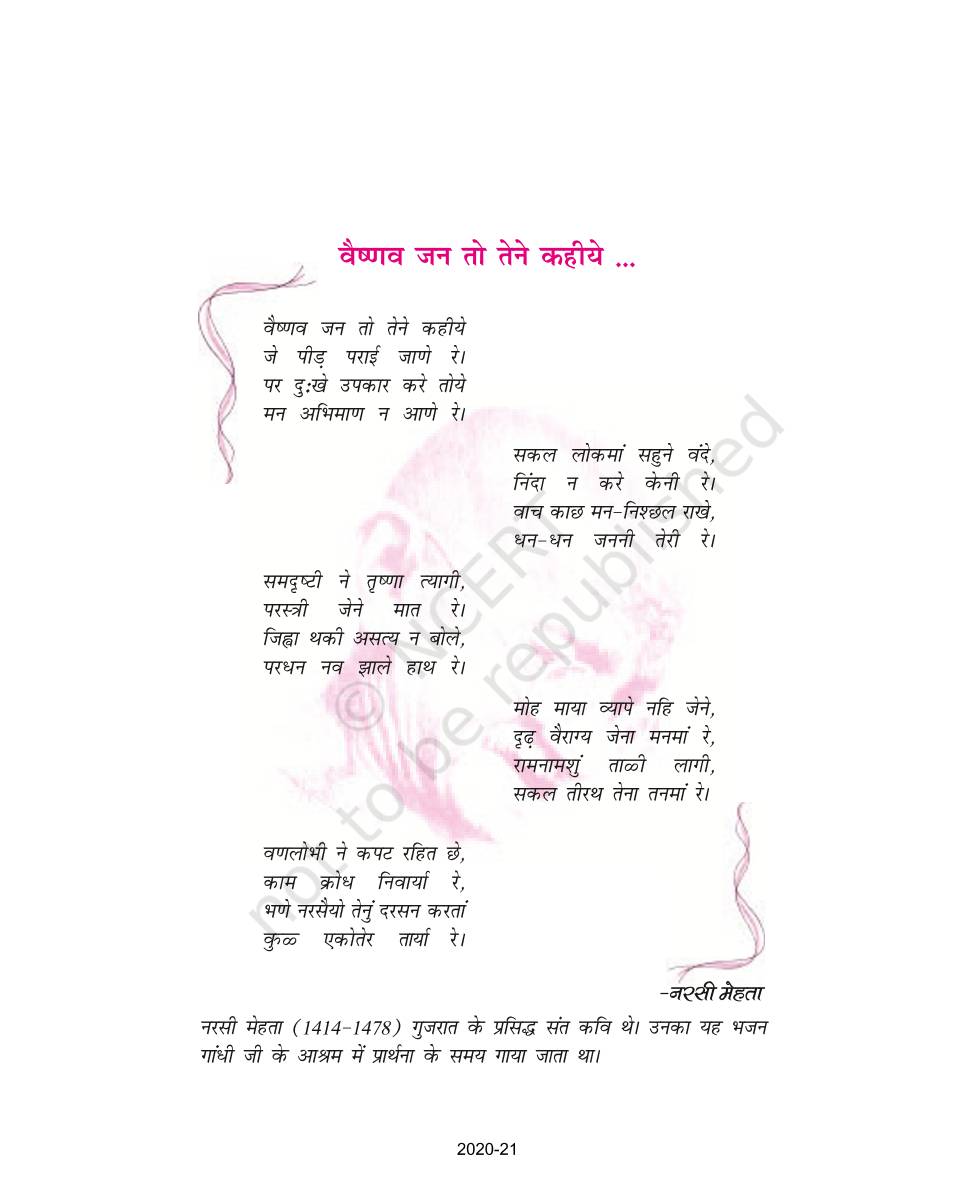 वैष्णव जन तो तेने कहीये ...
वैष्णव जन तो तेने कहीये
जे पीड़ पराई जाणे रे।
पर दु:खे उपकार करे तोये
मन अभिमाण न आणे रे।
सकल लोकमां सहुने वंदे,
निंदा न करे केनी रे।
वाच काछ मन-निश्छल राखे,
धन-धन जननी तेरी रे।
समदृष्टी ने तृष्णा त्यागी,
परस्त्री जेने मात रे।
जिह्वा थकी असत्य न बोले,
परधन नव झाले हाथ रे।
मोह माया व्यापे नहि जेने,
दृढ़ वैराग्य जेना मनमां रे,
रामनामशुं ताळी लागी,
सकल तीरथ तेना तनमां रे।
वणलोभी ने कपट रहित छे,
काम क्रोध निवार्या रे,
भणे नरसैयो तेनुं दरसन करतां
कुळ एकोतेर तार्या रे।
-नरसी मेहता
नरसी मेहता (1414-1478) गुजरात के प्रसिद्ध संत कवि थे। उनका यह भजन
गांधी जी के आश्रम में प्रार्थना के समय गाया जाता था।
© NCERT
not to be republished
2020-21